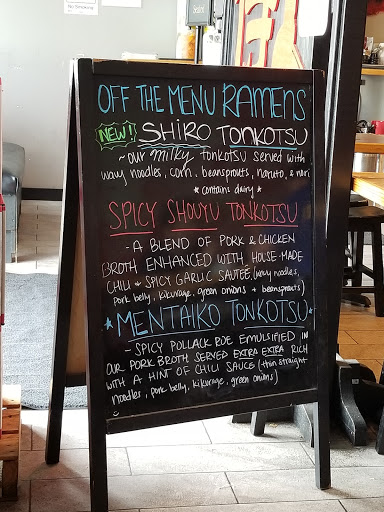 No Smoking
OFF THE MENU RAMENS
NEW! SHIRO TONKOTSU
~ our milky tonkotsu served with
wavy noodles, corn, beansprouts, naruto, & nori
* contains dairy *
SPICY SHOUYU TONKOTSU
- A BLEND OF PORK & CHICKEN
BROTH ENHANCED WITH HOUSE-MADE
CHILI & SPICY GARLIC SAUTEE (wavy noodles,
pork belly, kikurage, green onions & beansprouts)
* MENTAIKO TONKOTSU *
- SPICY POLLACK ROE EMULSIFIED IN
OUR PORK BROTH SERVED EXTRA EXTRA RICH
WITH A HINT OF CHILI SAUCE (thin straight
noodles, pork belly, kikurage, green onions)